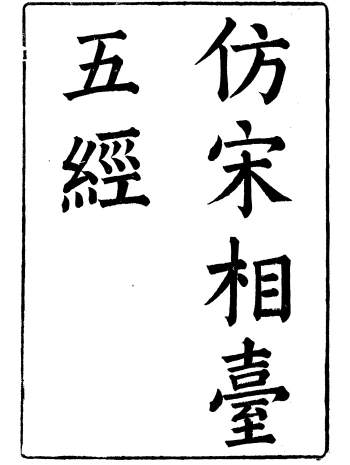 仿宋相臺
五經